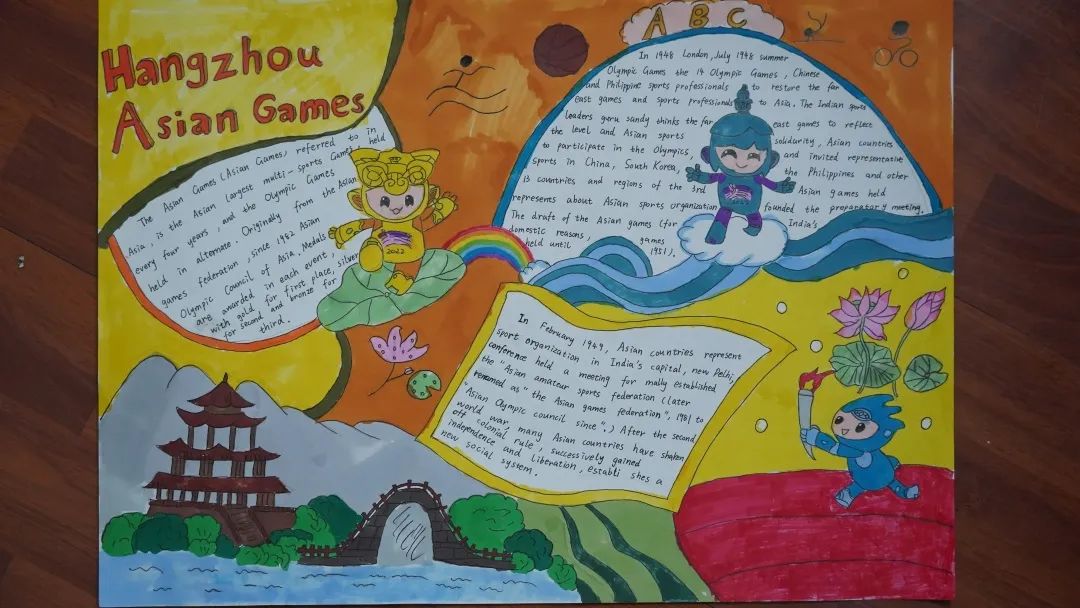 Hangzhou
Asian Games
A B C
The Asian Games (Asian Games, referred to in
Asia, is the Asian largest multi-sports Games held
every four years, and the Olympic Games
held in alternate. Originally from the Asian
games federation, since 1982 Asian
Olympic Council of Asia. Medals
are awarded in each event,
with gold for first place, silver
for second and bronze for
third.
2022
In 1948 London, July 1948 summer
Olympic Games the 14 Olympic Games, Chinese
and Philippine sports professionals to restore the far
east games and sports professionals to Asia. The Indian sports
leaders guru sandy thinks the far east games to reflect
the level and Asian sports solidarity, Asian countries
to participate in the Olympics, and invited representative
sports in China, South Korea, the Philippines and other
13 countries and regions of the 3rd Asian games held
represents about Asian sports organization founded the preparatory meeting.
The draft of the Asian games (for India's
domestic reasons, games
held until 1951).
In February 1949, Asian countries represent
sport organization in India's capital, new Pelhi,
conference held a meeting for mally established
the "Asian amateur sports federation (later
renamed as "the Asian games federation", 1981 to
"Asian Olympic council since".) After the second
world war, many Asian countries have shaken
off colonial rule, successively gained
independence and liberation, establi shes a
new social system.